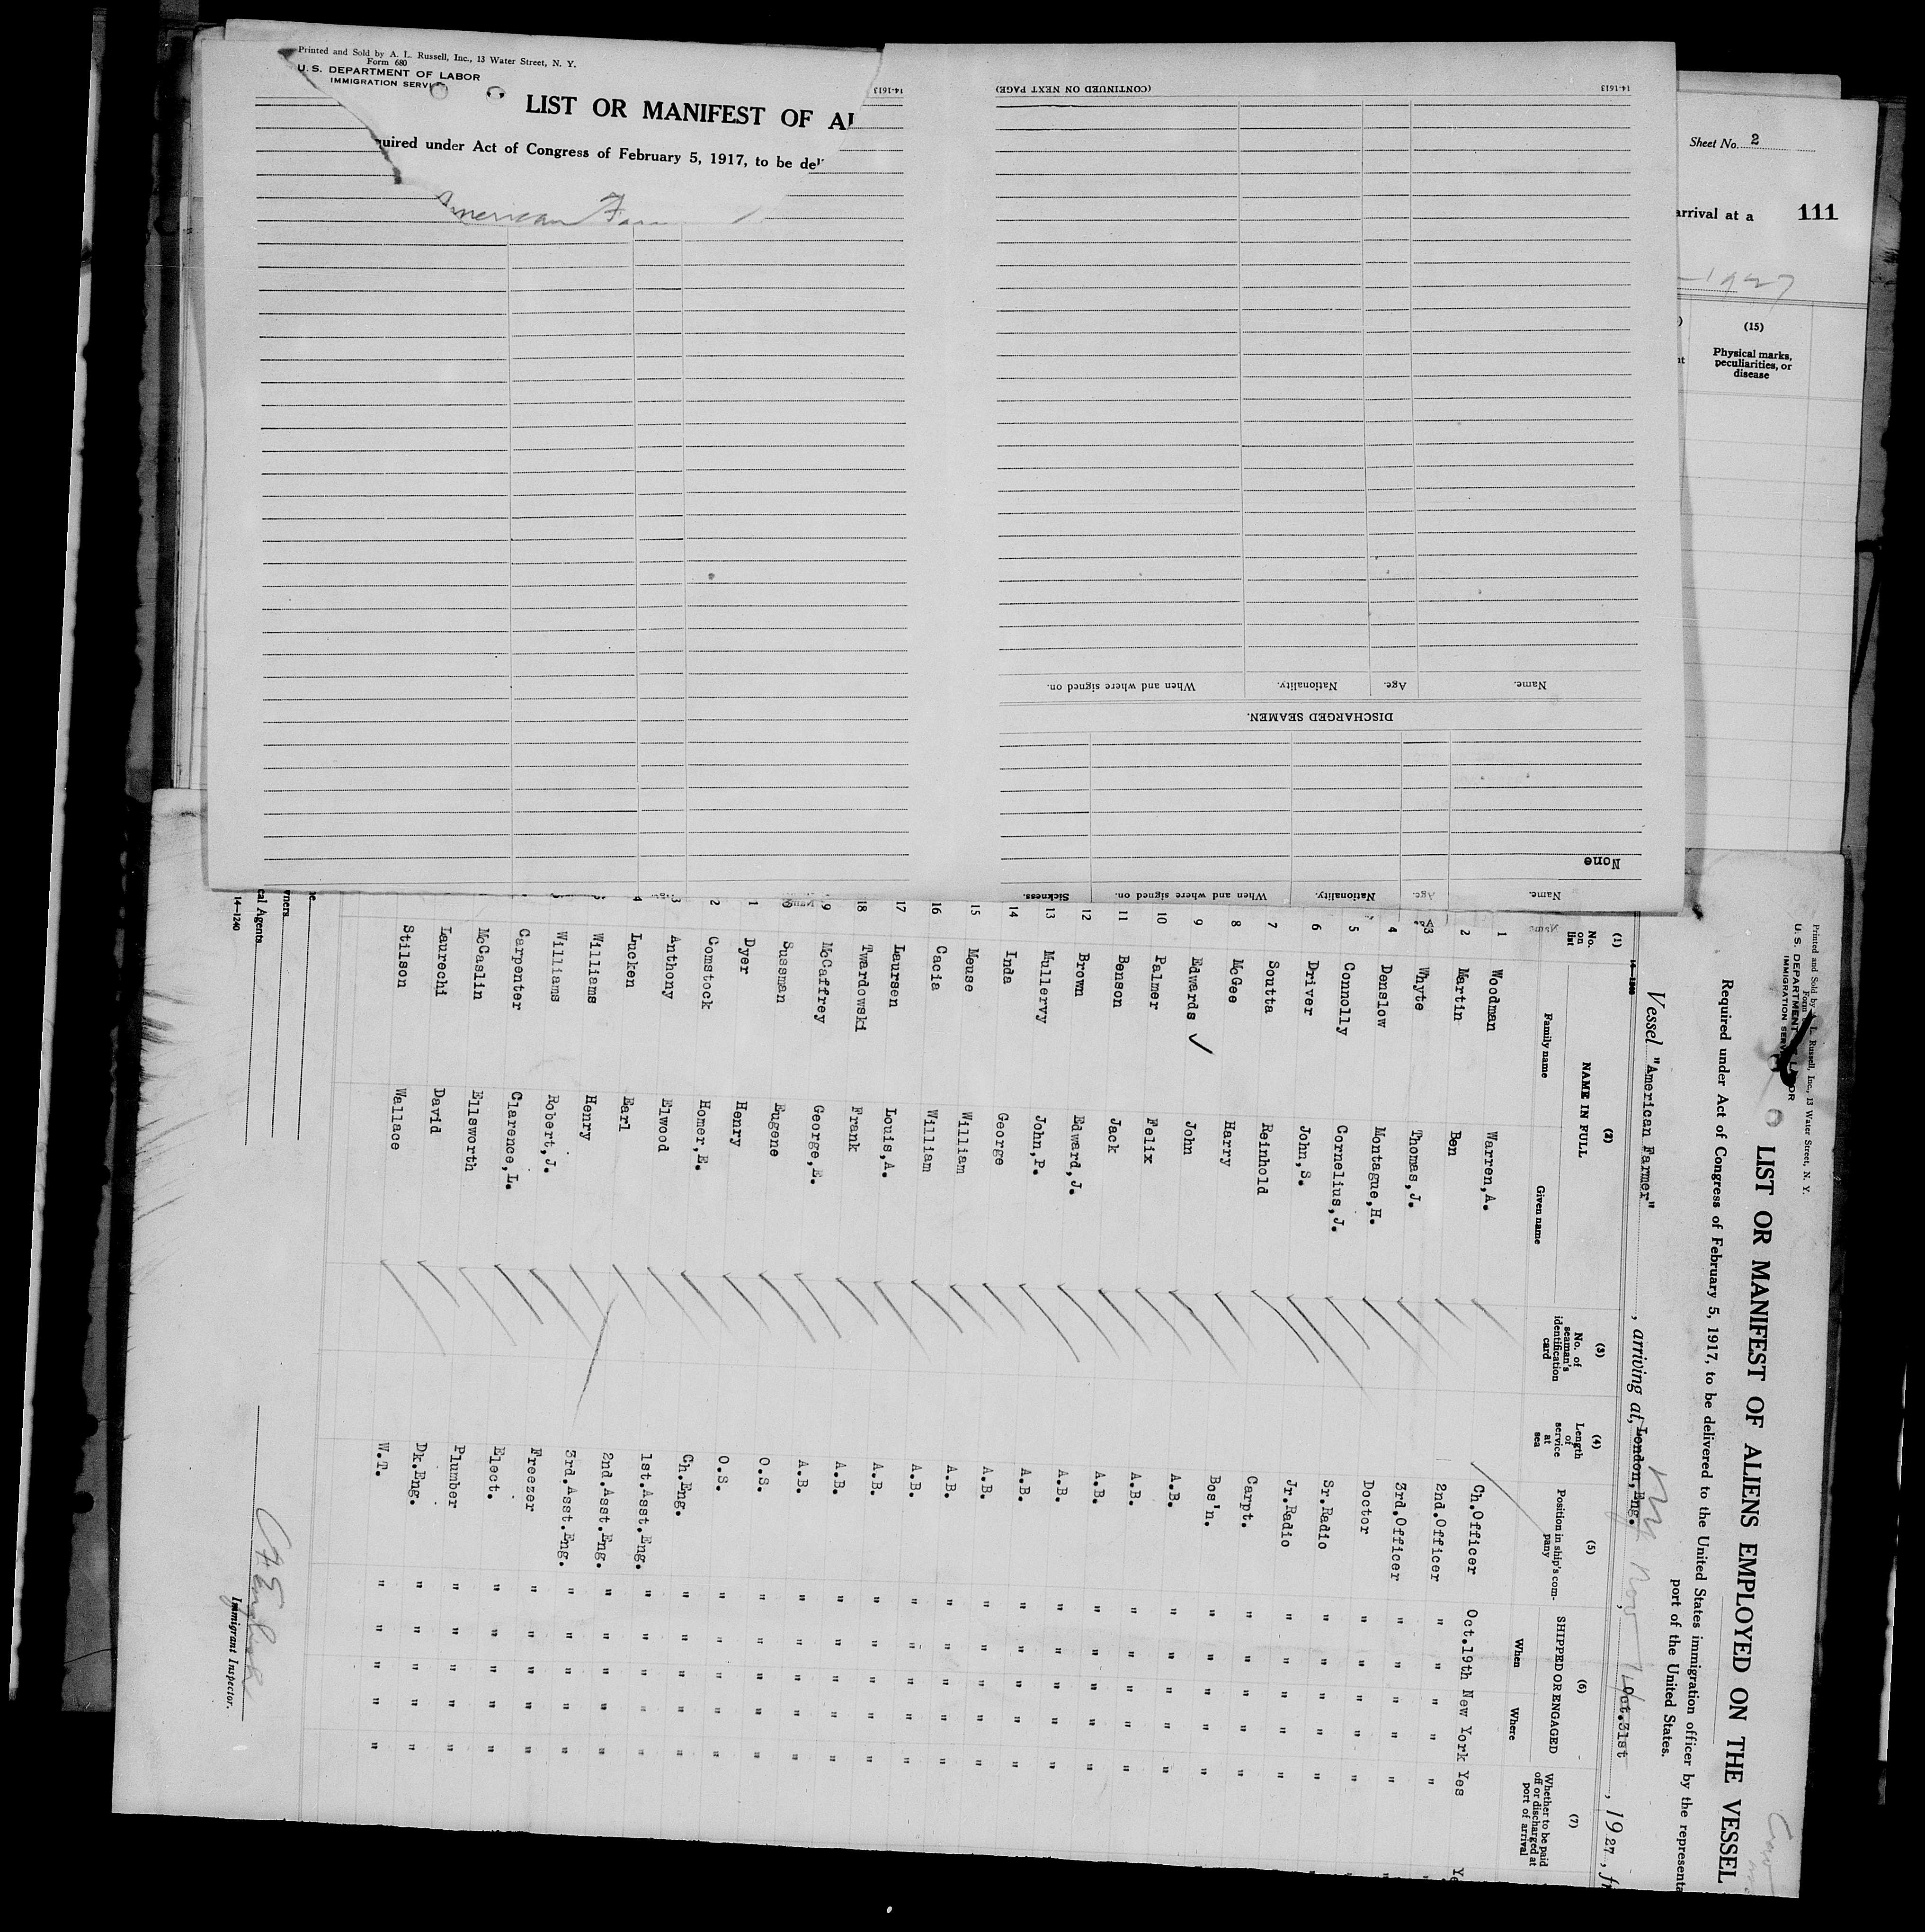 Printed and Sold by A. L. Russell, Inc., 13 Water Street, N. Y.
Form 680
U. S. DEPARTMENT OF LABOR
IMMIGRATION SERVI
LIST OR MANIFEST OF AL
quired under Act of Congress of February 5, 1917, to be del
American Far
14-1613
14-1613
(CONTINUED ON NEXT PAGE)
Name. Age. Nationality. When and where signed on.
DISCHARGED SEAMEN.
None
Name. Age. Nationality. When and where signed on. Sickness.
Sheet No. 2
arrival at a 111
1927
(15)
Physical marks, peculiarities, or disease
Printed and Sold by L. Russell, Inc., 13 Water Street, N. Y.
Form
U. S. DEPARTMENT OF LABOR
IMMIGRATION SERV
LIST OR MANIFEST OF ALIENS EMPLOYED ON THE VESSEL
Required under Act of Congress of February 5, 1917, to be delivered to the United States immigration officer by the representa
port of the United States.
Vessel "American Farmer", arriving at, London, Eng. NY Nov 14 Oct.31st, 1927, fr
14—1240
(1) (2) (3) (4) (5) (6) (7)
No. on list
NAME IN FULL
Family name Given name
No. of seaman's identification card
Length of service at sea
Position in ship's company
SHIPPED OR ENGAGED
When Where
Whether to be paid off or discharged at port of arrival
1 Woodman Warren,A. Ch.Officer Oct.19th New York Yes Ye
2 Martin Ben 2nd.Officer " " " " "
3 Whyte Thomas,J. 3rd.Officer " " " " "
4 Denslow Montague,H. Doctor " " " " "
5 Connolly Cornelius,J. Sr.Radio " " " " "
6 Driver John,S. Jr.Radio " " " " "
7 Soutta Reinhold Carpt. " " " " "
8 McGee Harry Bos'n. " " " " "
9 Edwards ✓ John A.B. " " " " "
10 Palmer Felix A.B. " " " " "
11 Benson Jack A.B. " " " " "
12 Brown Edward,J. A.B. " " " " "
13 Mullervy John,P. A.B. " " " " "
14 Inda George A.B. " " " " "
15 Meuse William A.B. " " " " "
16 Cacia William A.B. " " " " "
17 Laursen Louis,A. A.B. " " " " "
18 Twardowski Frank A.B. " " " " "
19 McCaffrey George,E. A.B. " " " " "
20 Sussman Eugene O.S. " " " " "
1 Dyer Henry O.S. " " " " "
2 Comstock Homer,E. Ch.Eng. " " " " "
3 Anthony Elwood 1st.Asst.Eng. " " " " "
4 Lucken Earl 2nd.Asst.Eng. " " " " "
Williams Henry 3rd.Asst.Eng. " " " " "
Williams Robert,J. Freezer " " " " "
Carpenter Clarence,L. Elect. " " " " "
McCaslin Ellsworth Plumber " " " " "
Laurechi David Dk.Eng. " " " " "
Stilson Wallace W.T. " " " " "
wners
cal Agents
14—1240
Immigrant Inspector.